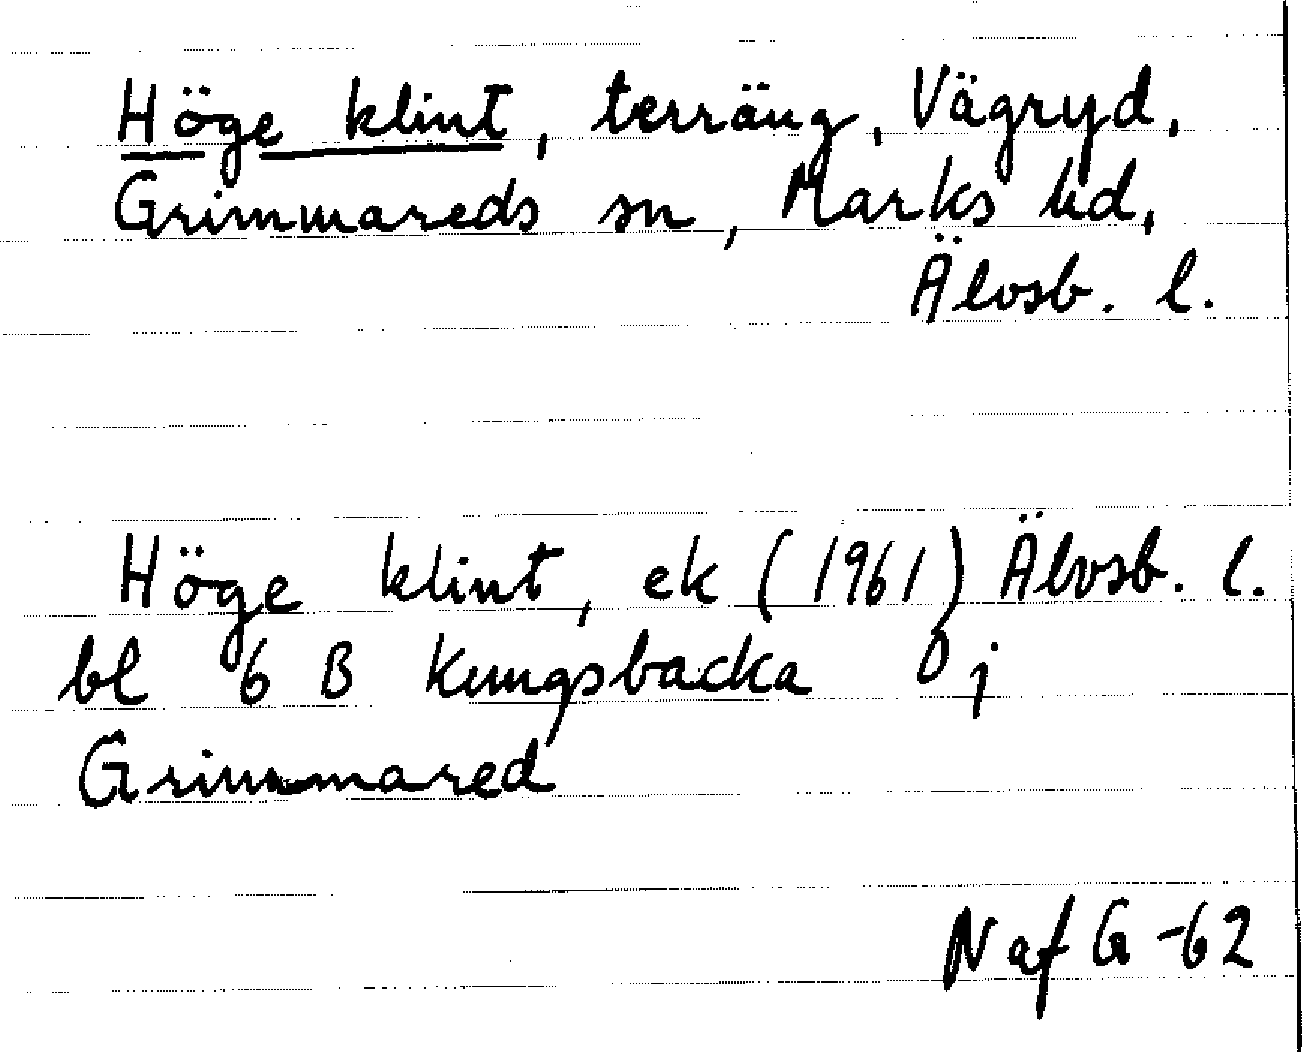 Höge klint, terräng, Vägryd,
Grimmareds sn, Marks hd,
Älvsb. l.
Höge klint, ek (1961) Älvsb. l.
bl 6 B Kungsbacka 0 j
Grimmared
N af G -62